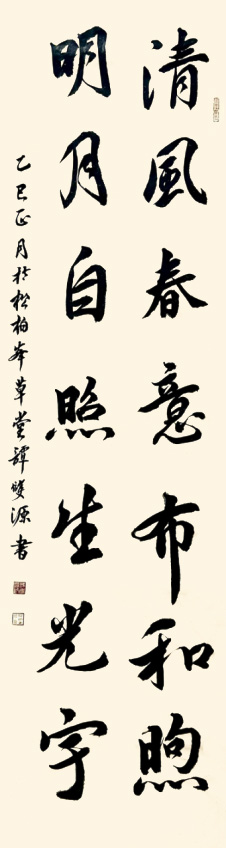 清風春意布和煦
明月自照生光字
乙巳正月於松柏峯草堂譚雙源書